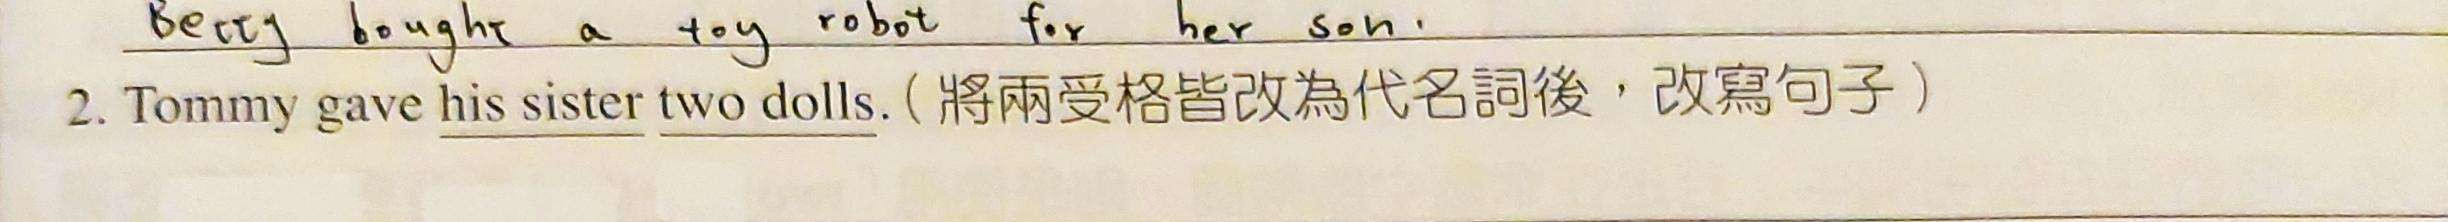 Betty bought a toy robot for her son.
2. Tommy gave his sister two dolls. (將兩受格皆改為代名詞後，改寫句子)